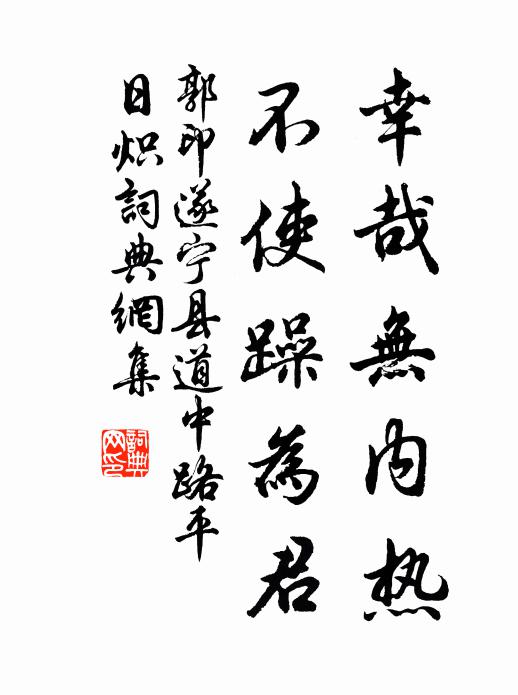 幸哉無内热
不使躁為君
郭印遂宁县道中路平
日炽詞典網集
詞典
网印